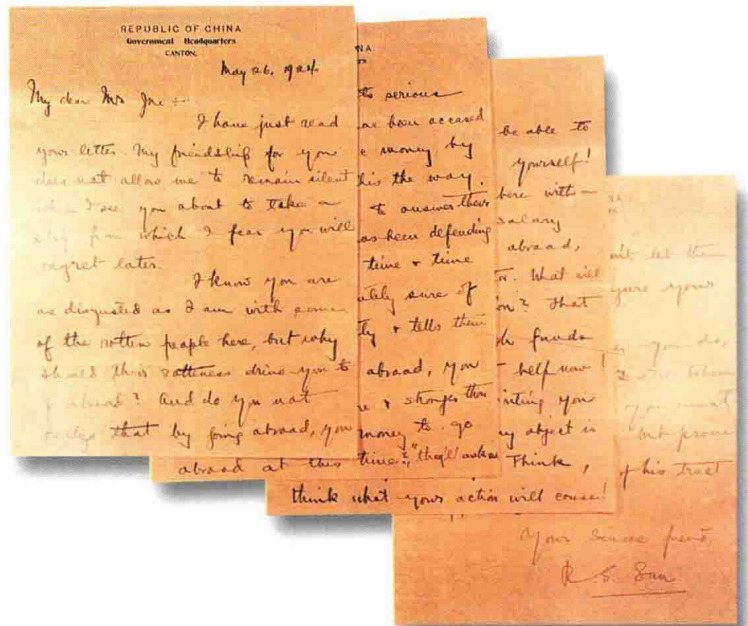 REPUBLIC OF CHINA
Government Headquarters
CANTON.
May 26, 1924.
My dear Mr Joe :-
I have just read
your letter. My friendship for you
does not allow me to remain silent
when I see you about to take a
step for which I fear you will
regret later.
I know you are
as disgusted as I am with some
of the rotten people here, but why
should their rotteness drive you to
go abroad? And do you not
realize that by going abroad, you
NA.
to serious
been accused
money by
his the way.
to answer their
as been defending
time & time
ately sure of
& tells them
abroad, you
& stronger than
money to go
abroad at this time?," they'll ask
be able to
yourself!
here with a
salary
abroad,
What will
on? That
funds
help now!
inting you
object is
Think,
think what your action will cause!
NA.
let them
your
you do,
you must
but prove
of his trust
Your sincere friend,
R. S. Sun